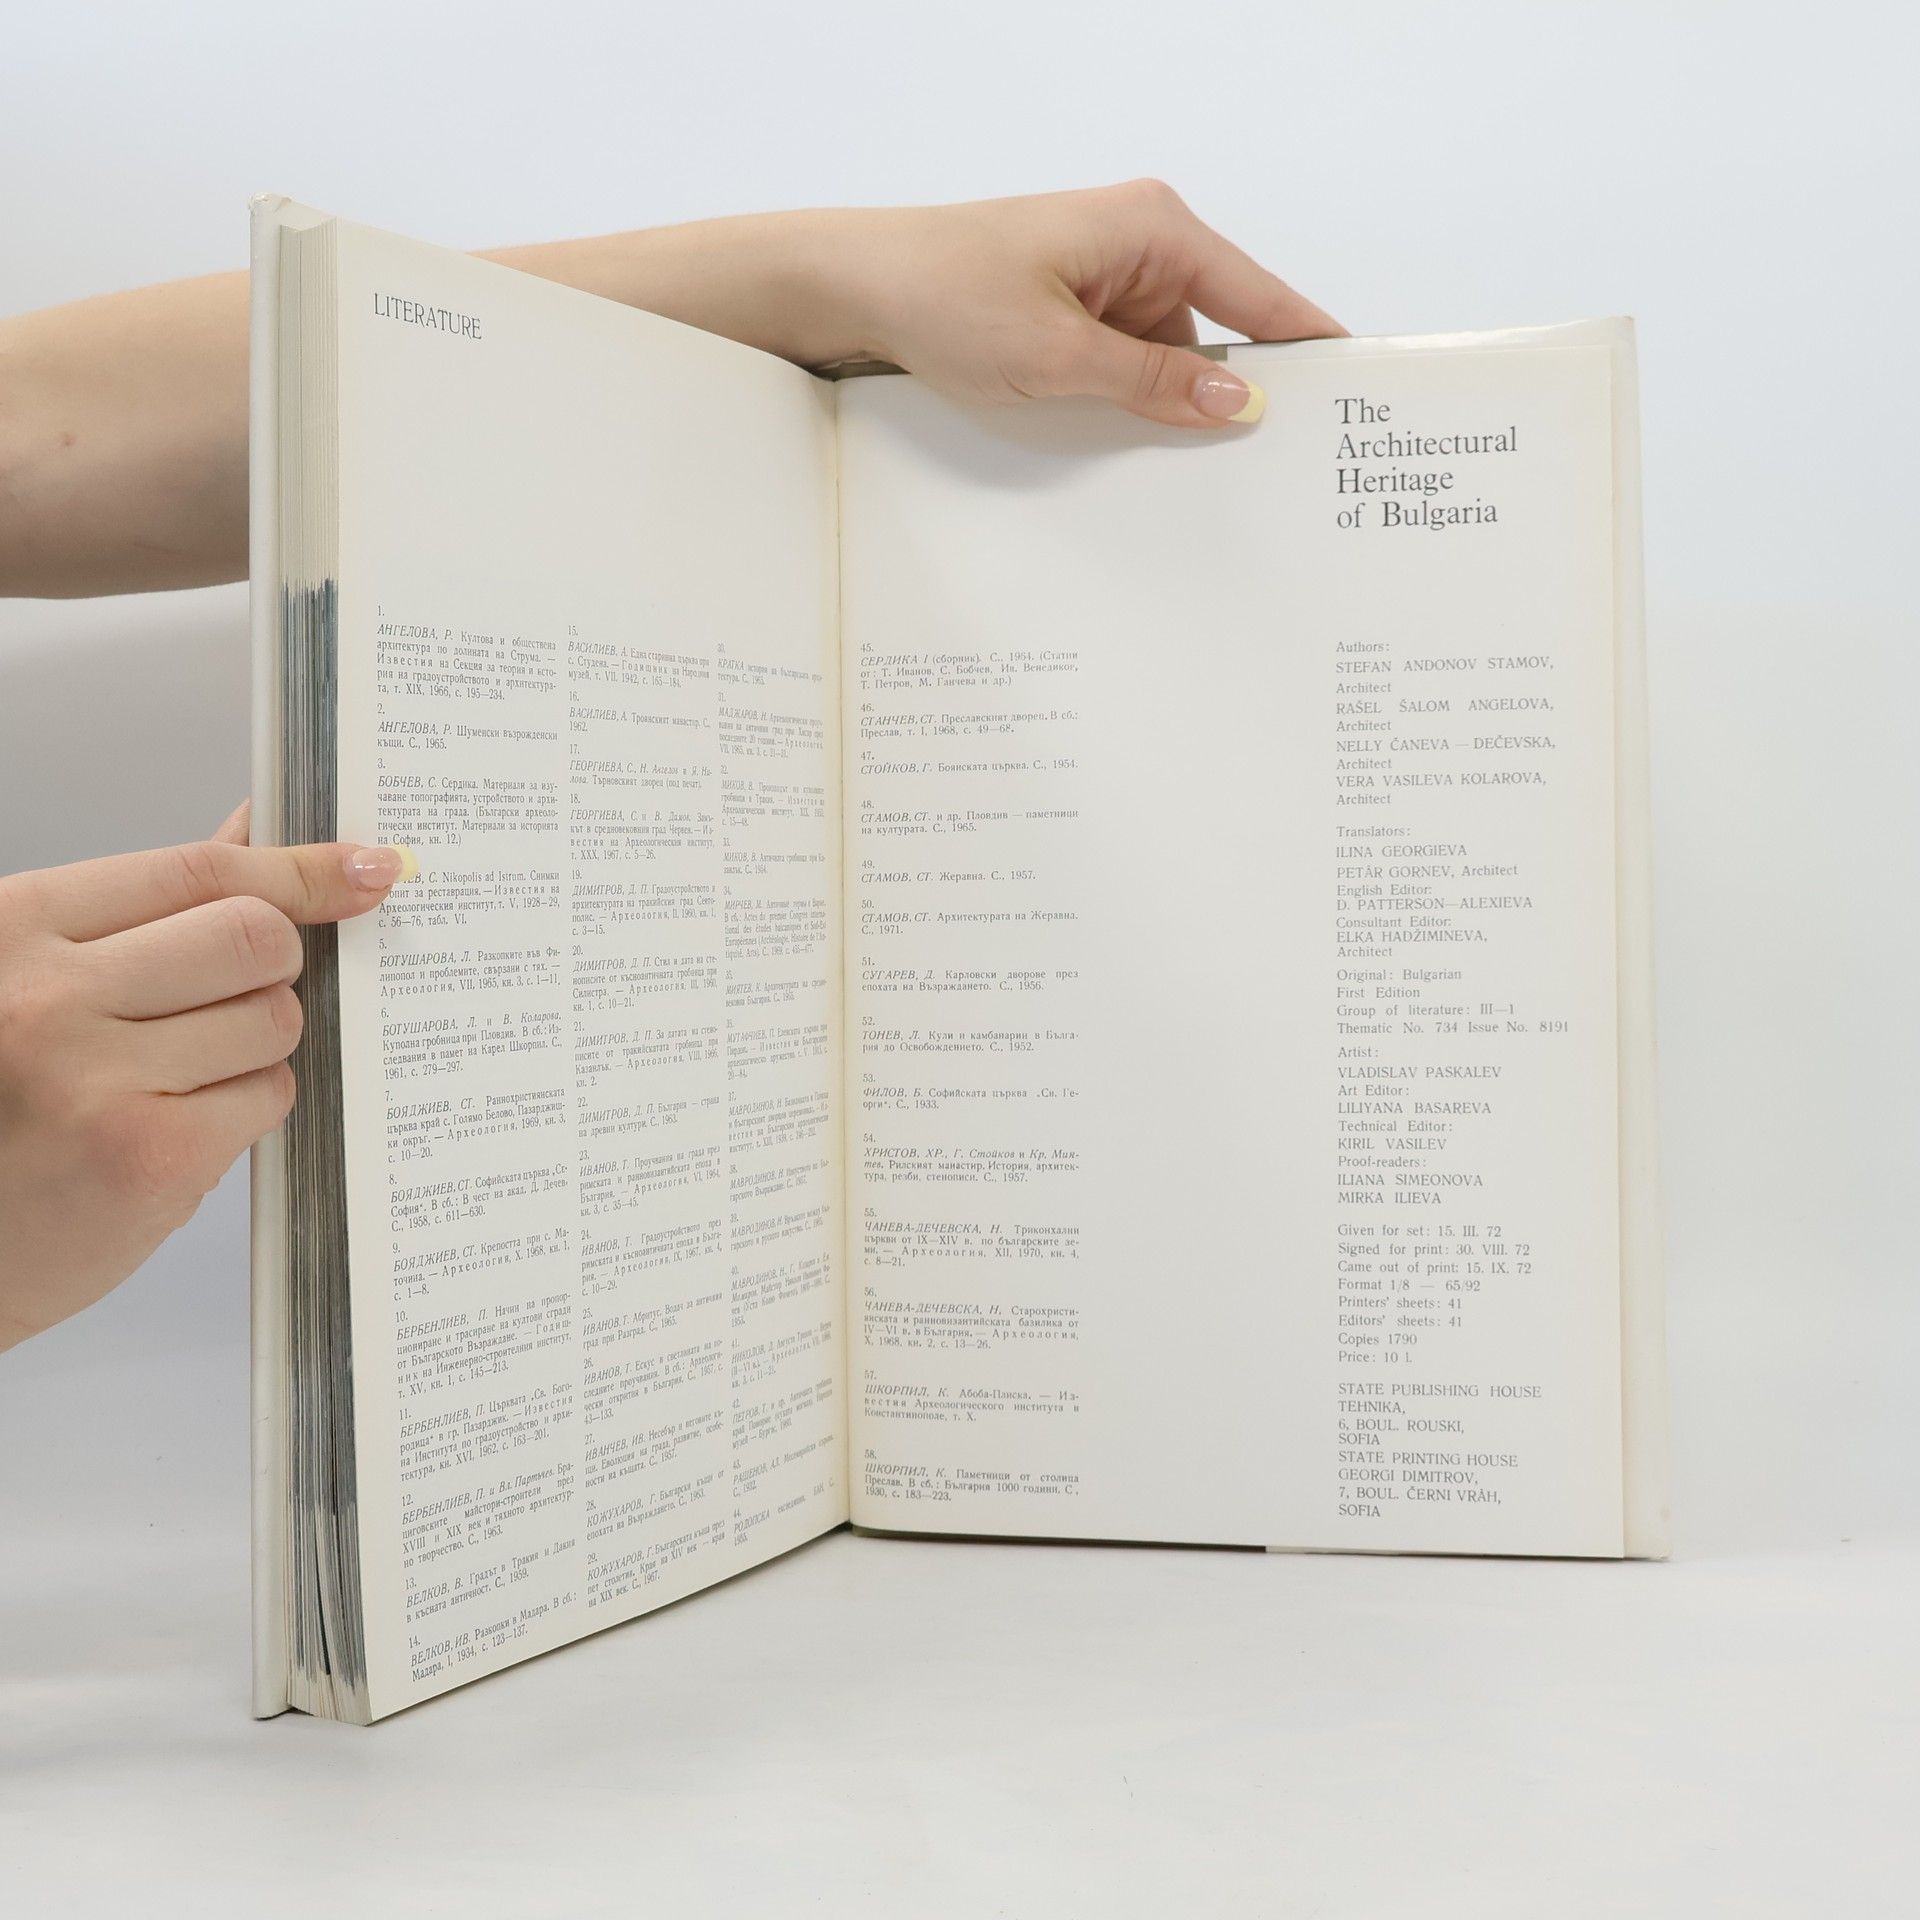 LITERATURE
1.
АНГЕЛОВА, Р. Култова и обществена
архитектура по долината на Струма. —
Известия на Секция за теория и исто-
рия на градоустройството и архитектура-
та, т. XIX, 1966, с. 195—234.
2.
АНГЕЛОВА, Р. Шуменски възрожденски
къщи. С., 1965.
3.
БОБЧЕВ, С. Сердика. Материали за изу-
чаване топографията, устройството и архи-
тектурата на града. (Български археоло-
гически институт. Материали за историята
на София, кн. 12.)
С. Nikopolis ad Istrum. Снимки
за реставрация. — Известия на
Археологическия институт, т. V, 1928—29,
с. 56—76, табл. VI.
5.
БОТУШАРОВА, Л. Разкопките във Фи-
липопол и проблемите, свързани с тях. —
Археология, VII, 1965, кн. 3, с. 1—11.
6.
БОТУШАРОВА, Л. и В. Коларова.
Куполна гробница при Пловдив. В сб.: Из-
следвания в памет на Карел Шкорпил. С.,
1961, с. 279—297.
7.
БОЯДЖИЕВ, СТ. Раннохристиянската
църква край с. Голямо Белово, Пазарджиш-
ки окръг. — Археология, 1969, кн. 3,
с. 10—20.
8.
БОЯДЖИЕВ, СТ. Софийската църква „Св.
София“. В сб.: В чест на акад. Д. Дечев.
С., 1958, с. 611—630.
9.
БОЯДЖИЕВ, СТ. Крепостта при с. Ма-
точина. — Археология, X, 1968, кн. 1,
с. 1—8.
10.
БЕРБЕНЛИЕВ, П. Начин на пропор-
циониране и трасиране на култови сгради
от Българското Възраждане. — Годиш-
ник на Инженерно-строителния институт,
т. XV, кн. 1, с. 145—213.
11.
БЕРБЕНЛИЕВ, П. Църквата „Св. Бого-
родица“ в гр. Пазарджик. — Известия
на Института по градоустройство и архи-
тектура, кн. XVI, 1962, с. 163—201.
12.
БЕРБЕНЛИЕВ, П. и Вл. Партъчев. Бра-
циговските майстори-строители през
XVIII и XIX век и тяхното архитектур-
но творчество. С., 1963.
13.
ВЕЛКОВ, В. Градът в Тракия и Дакия
в късната античност. С., 1959.
14.
ВЕЛКОВ, ИВ. Разкопки в Мадара. В сб.:
Мадара, I, 1934, с. 123—137.
15.
ВАСИЛИЕВ, А. Една старинна църква при
с. Студена. — Годишник на Народния
музей, т. VII. 1942, с. 165—184.
16.
ВАСИЛИЕВ, А. Троянският манастир. С.,
1962.
17.
ГЕОРГИЕВА, С., Н. Ангелов и Я. Ни-
лова. Търновският дворец (под печат).
18.
ГЕОРГИЕВА, С. и В. Дамов. Замъ-
кът в средновековния град Червен. — Из-
вестия на Археологическия институт,
т. XXX, 1967, с. 5—26.
19.
ДИМИТРОВ, Д. П. Градоустройството и
архитектурата на тракийския град Севто-
полис. — Археология, II, 1960, кн. 1,
с. 3—15.
20.
ДИМИТРОВ, Д. П. Стил и дата на сте-
нописите от късноантичната гробница при
Силистра. — Археология, III, 1960,
кн. 1, с. 10—21.
21.
ДИМИТРОВ, Д. П. За датата на стено-
писите от тракийската гробница при
Казанлък. — Археология, VIII, 1966,
кн. 2.
22.
ДИМИТРОВ, Д. П. България — страна
на древни култури. С., 1963.
23.
ИВАНОВ, Т. Проучвания на града през
римската и ранновизантийската епоха в
България. — Археология, VI, 1964,
кн. 3, с. 35—45.
24.
ИВАНОВ, Т. Градоустройството през
римската и късноантичната епоха в Бълга-
рия. — Археология, IX, 1967, кн. 4,
с. 10—29.
25.
ИВАНОВ, Т. Абритус. Водач за античния
град при Разград. С., 1965.
26.
ИВАНОВ, Т. Ескус в светлината на по-
следните проучвания. В сб.: Археологи-
чески открития в България. С., 1957, с.
43—133.
27.
ИВАНЧЕВ, ИВ. Несебър и неговите къ-
щи. Еволюция на града, развитие, особе-
ности на къщата. С., 1957.
28.
КОЖУХАРОВ, Г. Български къщи от
епохата на Възраждането. С., 1963.
29.
КОЖУХАРОВ, Г. Българската къща през
пет столетия. Края на XIV век — края
на XIX век. С., 1967.
30.
КРАТКА история на българската архи-
тектура. С., 1965.
31.
МАДЖАРОВ,
32.
МИКОВ, В.
33.
МИКОВ, В. Античната гробница при Ка-
занлък. С., 1954.
34.
МИРЧЕВ, М.
35.
МИЯТЕВ, К. Архитектурата на средно-
вековна България. С., 1965.
37.
МАВРОДИНОВ, Н.
38.
МАВРОДИНОВ, Н.
39.
МАВРОДИНОВ, Н.
40.
41.
НИКОЛОВ, Д.
42.
ПЕТРОВ, Т.
43.
РАШЕНОВ, АЛ. Месемврийски църкви.
С., 1932.
44.
РОДОПСКА експедиция. БАН, С.,
1955.
45.
СЕРДИКА I (сборник). С., 1964. (Статии
от: Т. Иванов, С. Бобчев, Ив. Венедиков,
Т. Петров, М. Ганчева и др.)
46.
СТАНЧЕВ, СТ. Преславският дворец. В сб.:
Преслав, т. I, 1968, с. 49—68.
47.
СТОЙКОВ, Г. Боянската църква. С., 1954.
48.
СТАМОВ, СТ. и др. Пловдив — паметници
на културата. С., 1965.
49.
СТАМОВ, СТ. Жеравна. С., 1957.
50.
СТАМОВ, СТ. Архитектурата на Жеравна.
С., 1971.
51.
СУГАРЕВ, Д. Карловски дворове през
епохата на Възраждането. С., 1956.
52.
ТОНЕВ, Л. Кули и камбанарии в Бълга-
рия до Освобождението. С., 1952.
53.
ФИЛОВ, Б. Софийската църква „Св. Ге-
орги“. С., 1933.
54.
ХРИСТОВ, ХР., Г. Стойков и Кр. Мия-
тев. Рилският манастир. История, архитек-
тура, резби, стенописи. С., 1957.
55.
ЧАНЕВА-ДЕЧЕВСКА, Н. Триконхални
църкви от IX—XIV в. по българските зе-
ми. — Археология, XII, 1970, кн. 4,
с. 8—21.
56.
ЧАНЕВА-ДЕЧЕВСКА, Н. Старохристи-
янската и ранновизантийската базилика от
IV—VI в. в България. — Археология,
X, 1968, кн. 2, с. 13—26.
57.
ШКОРПИЛ, К. Абоба-Плиска. — Из-
вестия Археологического института в
Константинополе, т. X.
58.
ШКОРПИЛ, К. Паметници от столица
Преслав. В сб.: България 1000 години. С.,
1930, с. 183—223.
The
Architectural
Heritage
of Bulgaria
Authors:
STEFAN ANDONOV STAMOV,
Architect
RAŠEL ŠALOM ANGELOVA,
Architect
NELLY ČANEVA — DEČEVSKA,
Architect
VERA VASILEVA KOLAROVA,
Architect
Translators:
ILINA GEORGIEVA
PETÂR GORNEV, Architect
English Editor:
D. PATTERSON—ALEXIEVA
Consultant Editor:
ELKA HADŽIMINEVA,
Architect
Original: Bulgarian
First Edition
Group of literature: III—1
Thematic No. 734 Issue No. 8191
Artist:
VLADISLAV PASKALEV
Art Editor:
LILIYANA BASAREVA
Technical Editor:
KIRIL VASILEV
Proof-readers:
ILIANA SIMEONOVA
MIRKA ILIEVA
Given for set: 15. III. 72
Signed for print: 30. VIII. 72
Came out of print: 15. IX. 72
Format 1/8 — 65/92
Printers' sheets: 41
Editors' sheets: 41
Copies 1790
Price: 10 l.
STATE PUBLISHING HOUSE
TEHNIKA,
6, BOUL. ROUSKI,
SOFIA
STATE PRINTING HOUSE
GEORGI DIMITROV,
7, BOUL. ČERNI VRÂH,
SOFIA